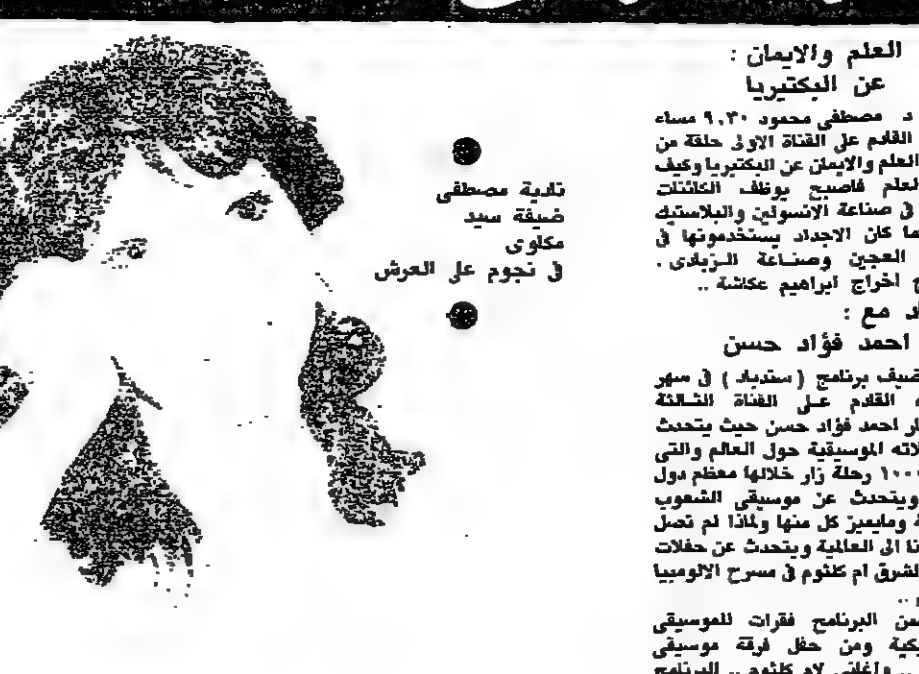 العلم والايمان :
عن البكتيريا
د مصطفى محمود ٩,٣٠ مساء
القادم على القناة الاولى حلقة من
العلم والايمان عن البكتيريا وكيف
العلم فاصبح يوظف الكائنات
فى صناعة الانسولين والبلاستيك
كما كان الاجداد يستخدمونها فى
العجين وصناعة الزبادى .
اخراج ابراهيم عكاشة ..
مع :
احمد فؤاد حسن
برنامج ( سندباد ) فى سهر
القادم على القناة الثالثة
احمد فؤاد حسن حيث يتحدث
الموسيقية حول العالم والتى
رحلة زار خلالها معظم دول
ويتحدث عن موسيقى الشعوب
ومايميز كل منها ولماذا لم تصل
الى العالمية ويتحدث عن حفلات
الشرق ام كلثوم فى مسرح الالومبيا
..
البرنامج فقرات للموسيقى
ومن حفل فرقة موسيقى
.. واغانى لام كلثوم .. البرنامج
نادية مصطفى
ضيفة سيد
مكاوى
فى نجوم على العرش